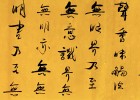 聲香味觸法
無眼界乃至
無意識界無
無明亦無無
明盡乃至無